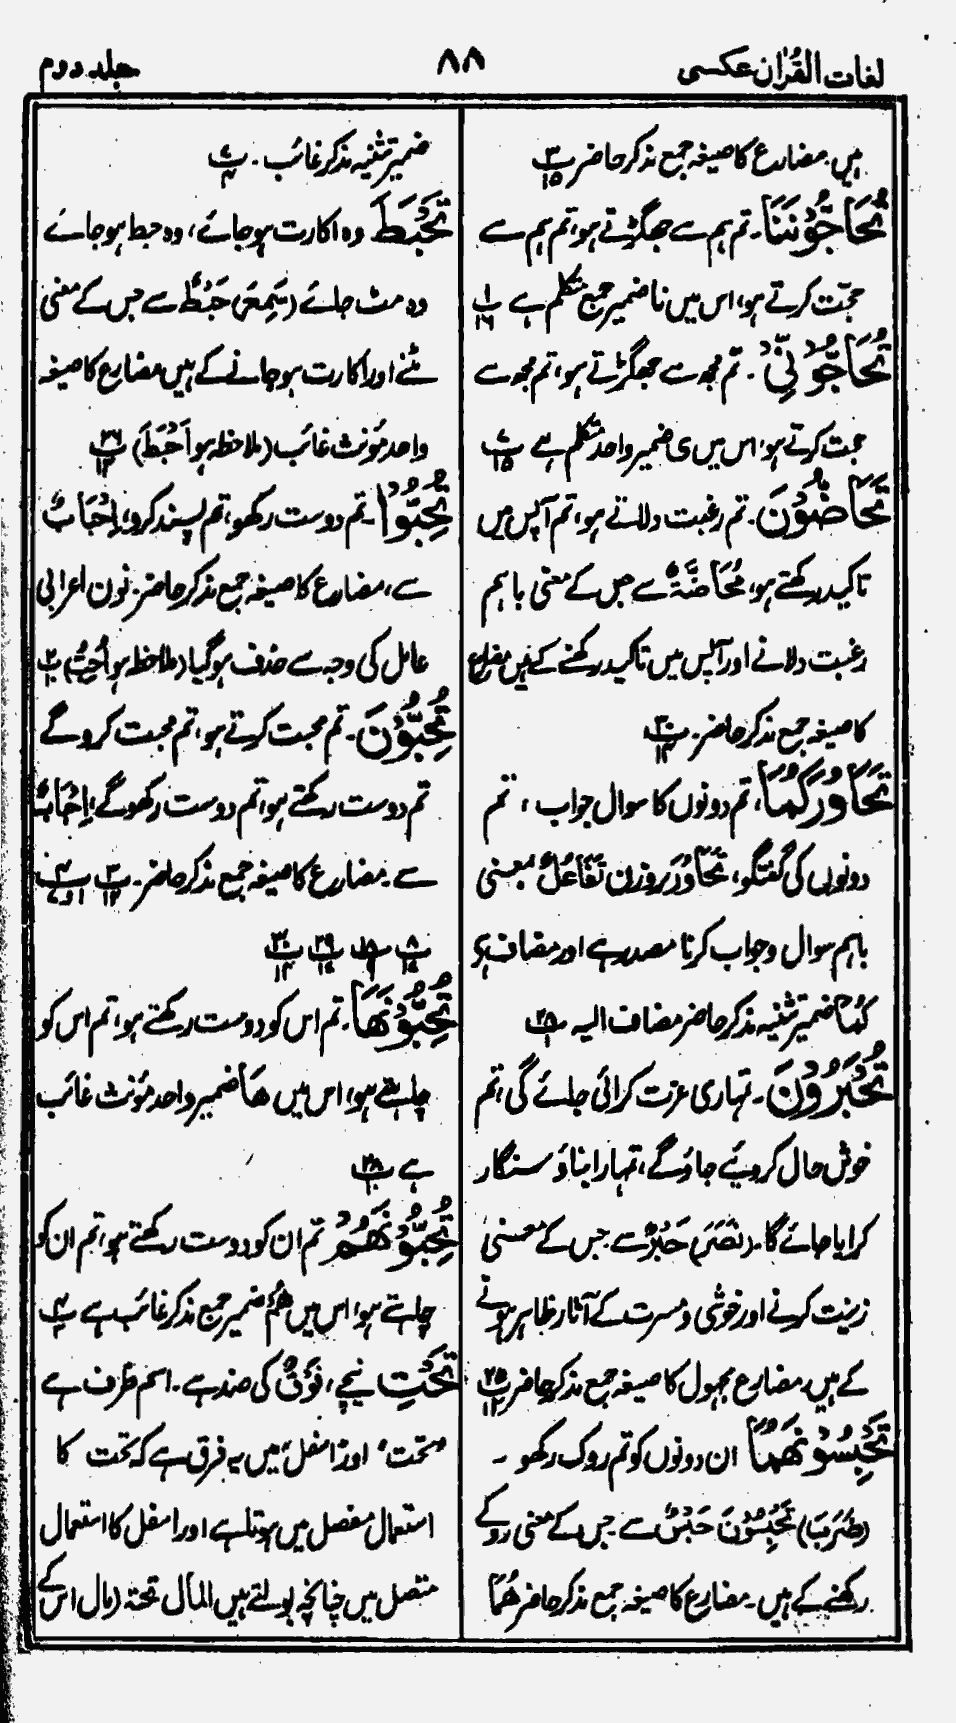 لغات القرآن عکسی
۸۸
جلد دوم
ہیں۔ مضارع کا صیغہ جمع مذکر حاضر پ۳/۱۵
تُحَاجُّوْنَنَا۔ تم ہم سے جھگڑتے ہو، تم ہم سے
حجت کرتے ہو، اس میں نا ضمیر جمع متکلم ہے پ۱/۱۶
تُحَاجُّوْنِّیْ۔ تم مجھ سے جھگڑتے ہو، تم مجھ سے
حجت کرتے ہو، اس میں ی ضمیر واحد متکلم ہے پ۷/۱۵
تَحَاضُّوْنَ۔ تم رغبت دلاتے ہو، تم آپس میں
تاکید رکھتے ہو، مُحَاضَّۃٌ سے جس کے معنی باہم
رغبت دلانے اور آپس میں تاکید رکھنے کے ہیں مضارع
کا صیغہ جمع مذکر حاضر۔ پ۳۰/۱۴
تَحَاوُرَکُمَا، تم دونوں کا سوال جواب، تم
دونوں کی گفتگو، تَحَاوُرَ بروزن تَفَاعُلٌ بمعنی
باہم سوال وجواب کرنا مصدر ہے اور مضاف ہے
کُمَا ضمیر تثنیہ مذکر حاضر مضاف الیہ پ۲۸/۱
تُحْبَرُوْنَ۔ تمہاری عزت کرائی جائے گی، تم
خوش حال کردیئے جاؤ گے، تمہارا بناؤ سنگار
کرایا جائے گا۔ (نَصَرَ) حَبْرٌ سے جس کے معنیٰ
زینت کرنے اور خوشی و مسرت کے آثار ظاہر ہونے
کے ہیں، مضارع مجہول کا صیغہ جمع مذکر حاضر پ۲۵/۱۲
تَحْبِسُوْنَهُمَا ان دونوں کو تم روک رکھو۔
(ضَرَبَ) تَحْبِسُوْنَ حَبْسٌ سے جس کے معنی روکے
رکھنے کے ہیں۔ مضارع کا صیغہ جمع مذکر حاضر هُمَا
ضمیر تثنیہ مذکر غائب۔ پ۷/۴
تَحْبَطَ وہ اکارت ہوجائے، وہ حبط ہوجائے
وہ مٹ جائے (سَمِعَ) حَبْطٌ سے جس کے معنی
مٹنے اور اکارت ہوجانے کے ہیں مضارع کا صیغہ
واحد مؤنث غائب (ملاحظہ ہو اَحْبَطَ) پ۲۶/۱۳
تُحِبُّوْا۔ تم دوست رکھو، تم پسند کرو، اِحْبَابٌ
سے، مضارع کا صیغہ جمع مذکر حاضر۔ نون اعرابی
عامل کی وجہ سے حذف ہوگیا (ملاحظہ ہو اُحِبُّ) پ۲/۱۰
تُحِبُّوْنَ۔ تم محبت کرتے ہو، تم محبت کروگے
تم دوست رکھتے ہو، تم دوست رکھوگے، اِحْبَابٌ
سے۔ مضارع کا صیغہ جمع مذکر حاضر۔ پ۳/۱۲ پ۴/۱ و۷
پ۸/۱۷ پ۱۸/۹ پ۲۹/۱۷ پ۳۰/۱۴
تُحِبُّوْنَهَا۔ تم اس کو دوست رکھتے ہو، تم اس کو
چاہتے ہو، اس میں هَا ضمیر واحد مؤنث غائب
ہے پ۲۸/۱۰
تُحِبُّوْنَهُمْ تم ان کو دوست رکھتے ہو، تم ان کو
چاہتے ہو، اس میں هُمْ ضمیر جمع مذکر غائب ہے پ۴/۳
تَحْتِ نیچے، فَوْقُ کی ضد ہے۔ اسم ظرف ہے
"تحت" اور "اسفل" میں یہ فرق ہے کہ تحت کا
استعمال منفصل میں ہوتا ہے اور اسفل کا استعمال
متصل میں چنانچہ بولتے ہیں المال تحتہ (مال اس کے